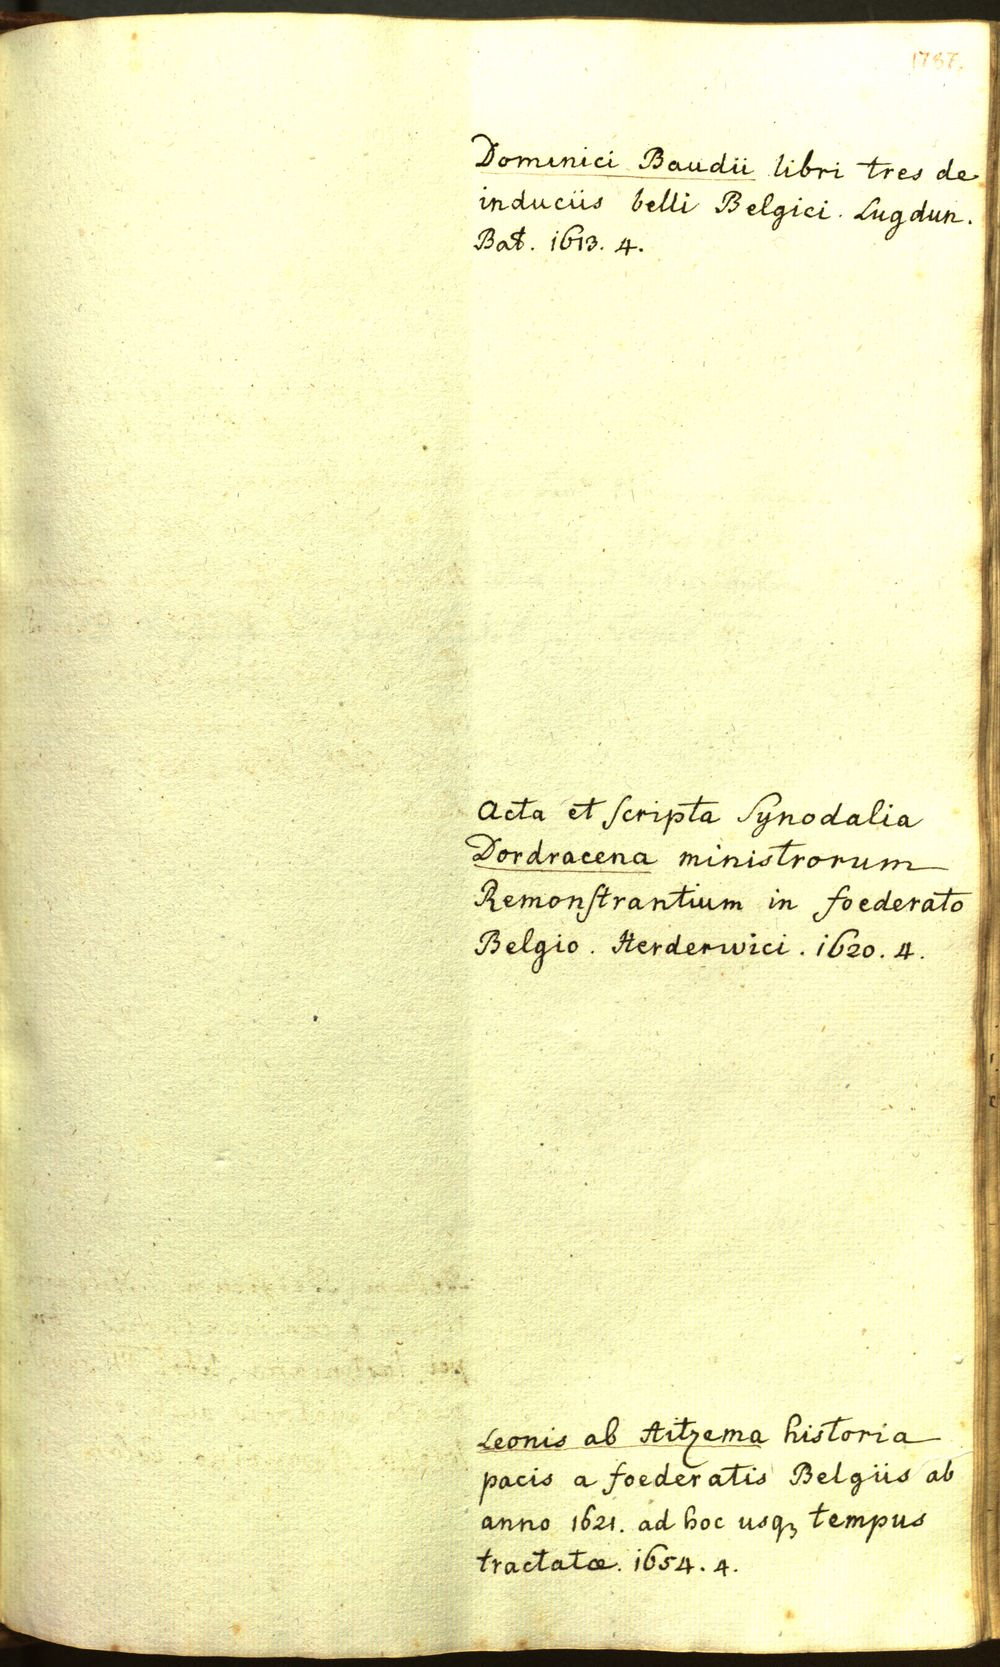 1787.
Dominici Baudii libri tres de
induciis belli Belgici. Lugdun.
Bat. 1613. 4.
Acta et scripta Synodalia
Dordracena ministrorum
Remonstrantium in foederato
Belgio. Herderwici. 1620. 4.
Leonis ab Aitzema historia
pacis a foederatis Belgiis ab
anno 1621. ad hoc usqꝫ tempus
tractatæ. 1654. 4.